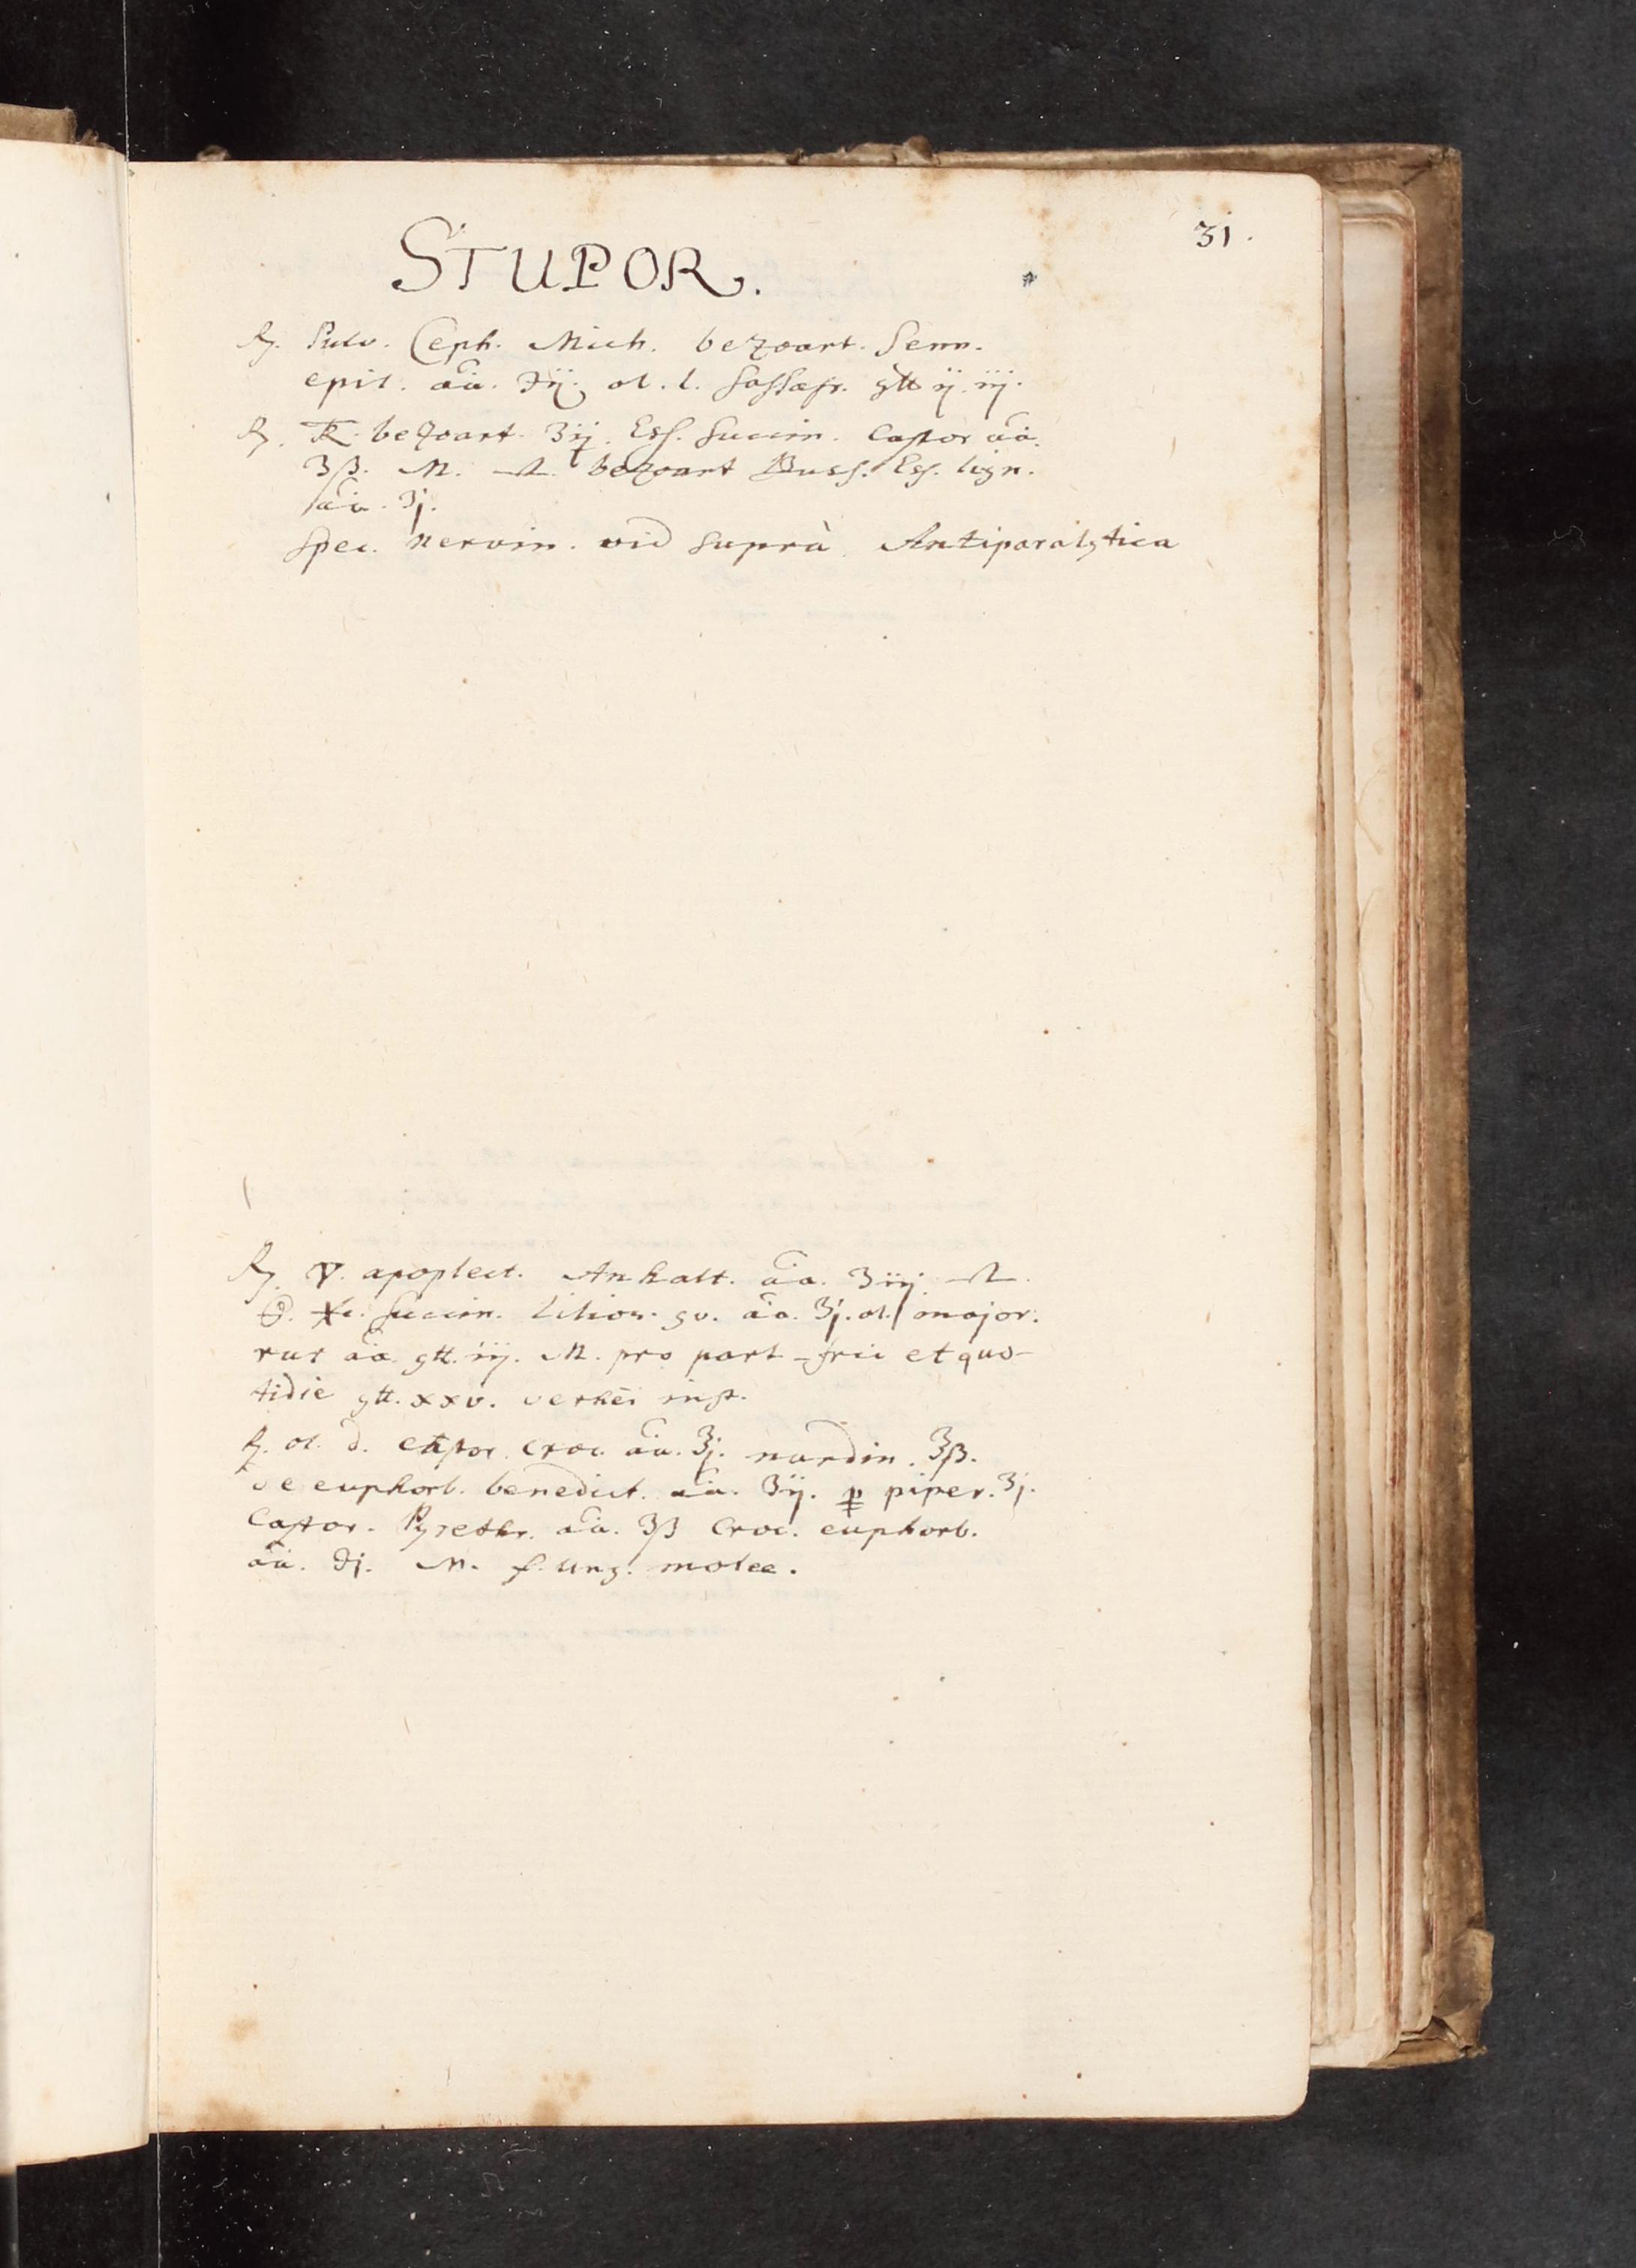 31.
STUPOR.
℞. Pulv. Ceph. Mich. bezoart. Senn.
epil. āā. ℈ij. ol. l. Sassafr. gtt ij. iij.
℞. bezoart. ʒij. Ess. Succin. Castor āā.
ʒβ. M. bezoart Buss. Ess. lign.
āā. ʒj.
Spec. nervin. vid suprà. Antiparalytica
℞. 🜄. apoplect. Anhalt. āā. ʒiij.
Succin. Lilior. āā. ʒj. ol. major.
rut āā. gtt. iij. M. pro part fric et quo-
tidie gtt. xxv.
℞. ol. d. croc. āā. ʒj. nardin. ʒβ.
de euphorb. benedict. āā. ʒij. piper. ʒj.
Castor. Pyrethr. āā. ʒβ Croc. euphorb.
āā. ℈j. M. f. ung. molle.